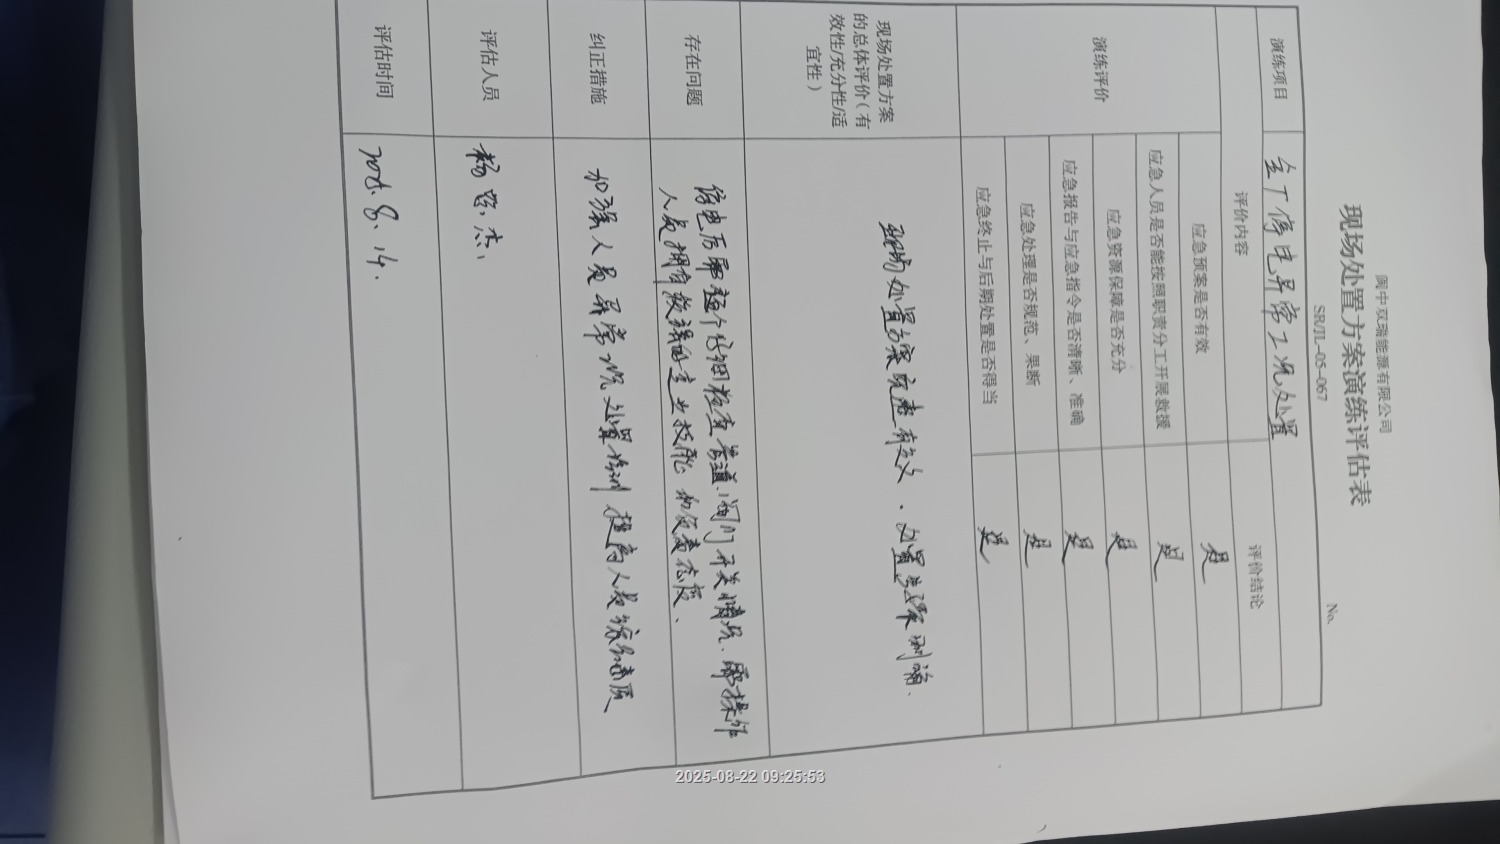 阆中双瑞能源有限公司
现场处置方案演练评估表
SR/JL-05-067
No.
演练项目 全厂停电异常工况处置
评价内容 评价结论
演练评价
应急预案是否有效 是
应急人员是否能按照职责分工开展救援 是
应急资源保障是否充分 是
应急报告与应急指令是否清晰、准确 是
应急处理是否规范、果断 是
应急终止与后期处置是否得当 是
现场处置方案
的总体评价（有
效性/充分性/适
宜性）
现场处置方案完善有效，处置步骤明确.
存在问题
停电后需逐个仔细检查普通阀门开关情况.需操作
人员拥有较强的专业技能和反应.
纠正措施
加强人员异常情况处置培训 提高人员综合素质
评估人员
评估时间
2025.8.14.
2025-08-22 09:25:53